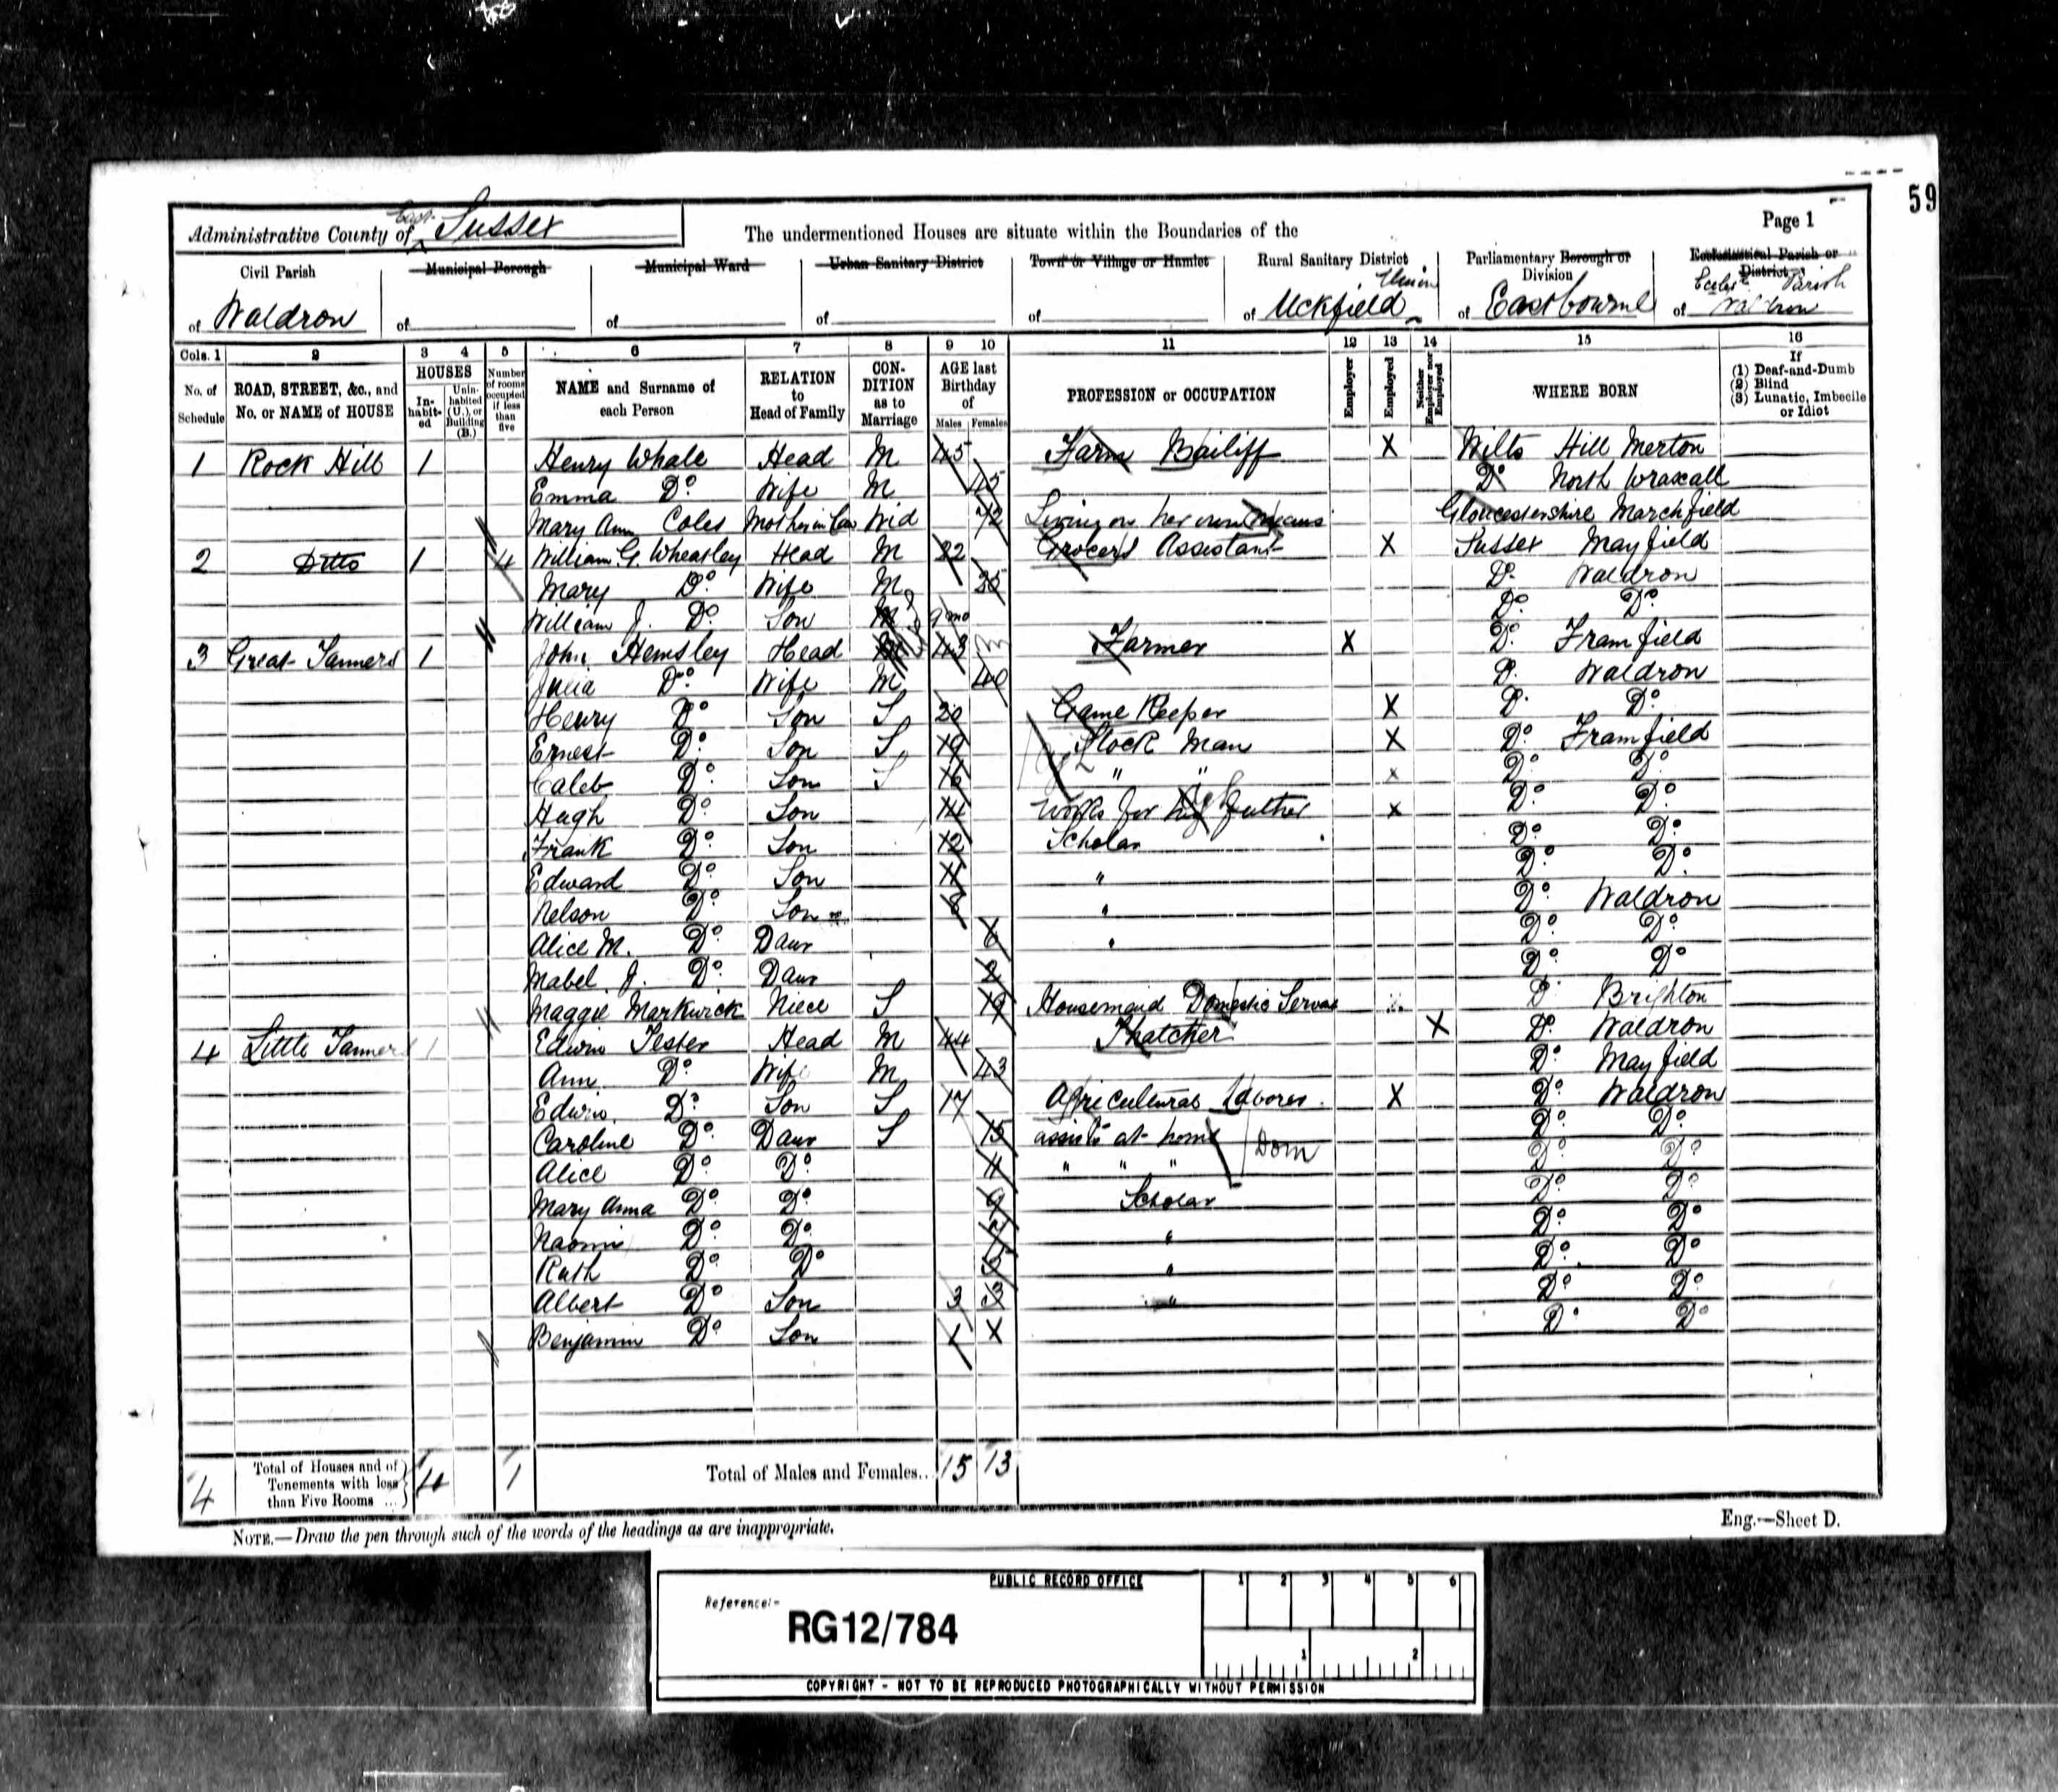 59
Page 1
Administrative County of East Sussex
The undermentioned Houses are situate within the Boundaries of the
Civil Parish of Waldron
Municipal Borough of
Municipal Ward of
Urban Sanitary District of
Town or Village or Hamlet of
Rural Sanitary District of Uckfield Union
Parliamentary Borough or Division of Eastbourne
Ecclesiastical Parish or District of Waldron Eccles Parish
Cols. 1 2 3 4 5 6 7 8 9 10 11 12 13 14 15 16
No. of Schedule
ROAD, STREET, &c., and No. or NAME of HOUSE
HOUSES
In-habit-ed
Unin-habited (U.), or Building (B.)
Number of rooms occupied if less than five
NAME and Surname of each Person
RELATION to Head of Family
CON-DITION as to Marriage
AGE last Birthday of
Males Females
PROFESSION or OCCUPATION
Employer
Employed
Neither Employer nor Employed
WHERE BORN
If (1) Deaf-and-Dumb (2) Blind (3) Lunatic, Imbecile or Idiot
1 Rock Hill 1 Henry Whale Head M 45 Farm Bailiff X Wilts Hill Merton
Emma Do Wife M 45 Do North Wraxall
Mary Ann Coles Mother in Law Wid 72 Living on her own Means Gloucestershire Marchfield
2 Ditto 1 4 William G. Wheatley Head M 22 Grocers Assistant X Sussex Mayfield
Mary Do Wife M 25 Do Waldron
William J. Do Son 9 mo Do Do
3 Great Tanners 1 John Hemsley Head M 43 Farmer X Do Framfield
Julia Do Wife M 40 Do Waldron
Henry Do Son S 20 Game Keeper X Do Do
Ernest Do Son S 19 Stock Man X Do Framfield
Caleb Do Son S 16 " " x Do Do
Hugh Do Son 14 Works for his father x Do Do
Frank Do Son 12 Scholar Do Do
Edward Do Son " Do Do
Nelson Do Son 8 " Do Waldron
Alice M. Do Daur 6 " Do Do
Mabel J. Do Daur 2 Do Do
Maggie Markwick Niece S 19 Housemaid Domestic Servant Do Brighton
4 Little Tanners 1 Edwin Tester Head M 44 Thatcher X Do Waldron
Ann Do Wife M 43 Do Mayfield
Edwin Do Son S 17 Agricultural Laborer X Do Waldron
Caroline Do Daur S 15 assists at home Dom Do Do
Alice Do Do 11 " " " Do Do
Mary Anna Do Do 9 Scholar Do Do
Naomi Do Do 7 " Do Do
Ruth Do Do 5 " Do Do
Albert Do Son 3 3 " Do Do
Benjamin Do Son 1 X Do Do
4 Total of Houses and of Tenements with less than Five Rooms ... 4 1 Total of Males and Females.. 15 13
NOTE.—Draw the pen through such of the words of the headings as are inappropriate.
Eng.—Sheet D.
PUBLIC RECORD OFFICE
Reference:-
RG12/784
1 2 3 4 5 6
1 2
COPYRIGHT - NOT TO BE REPRODUCED PHOTOGRAPHICALLY WITHOUT PERMISSION